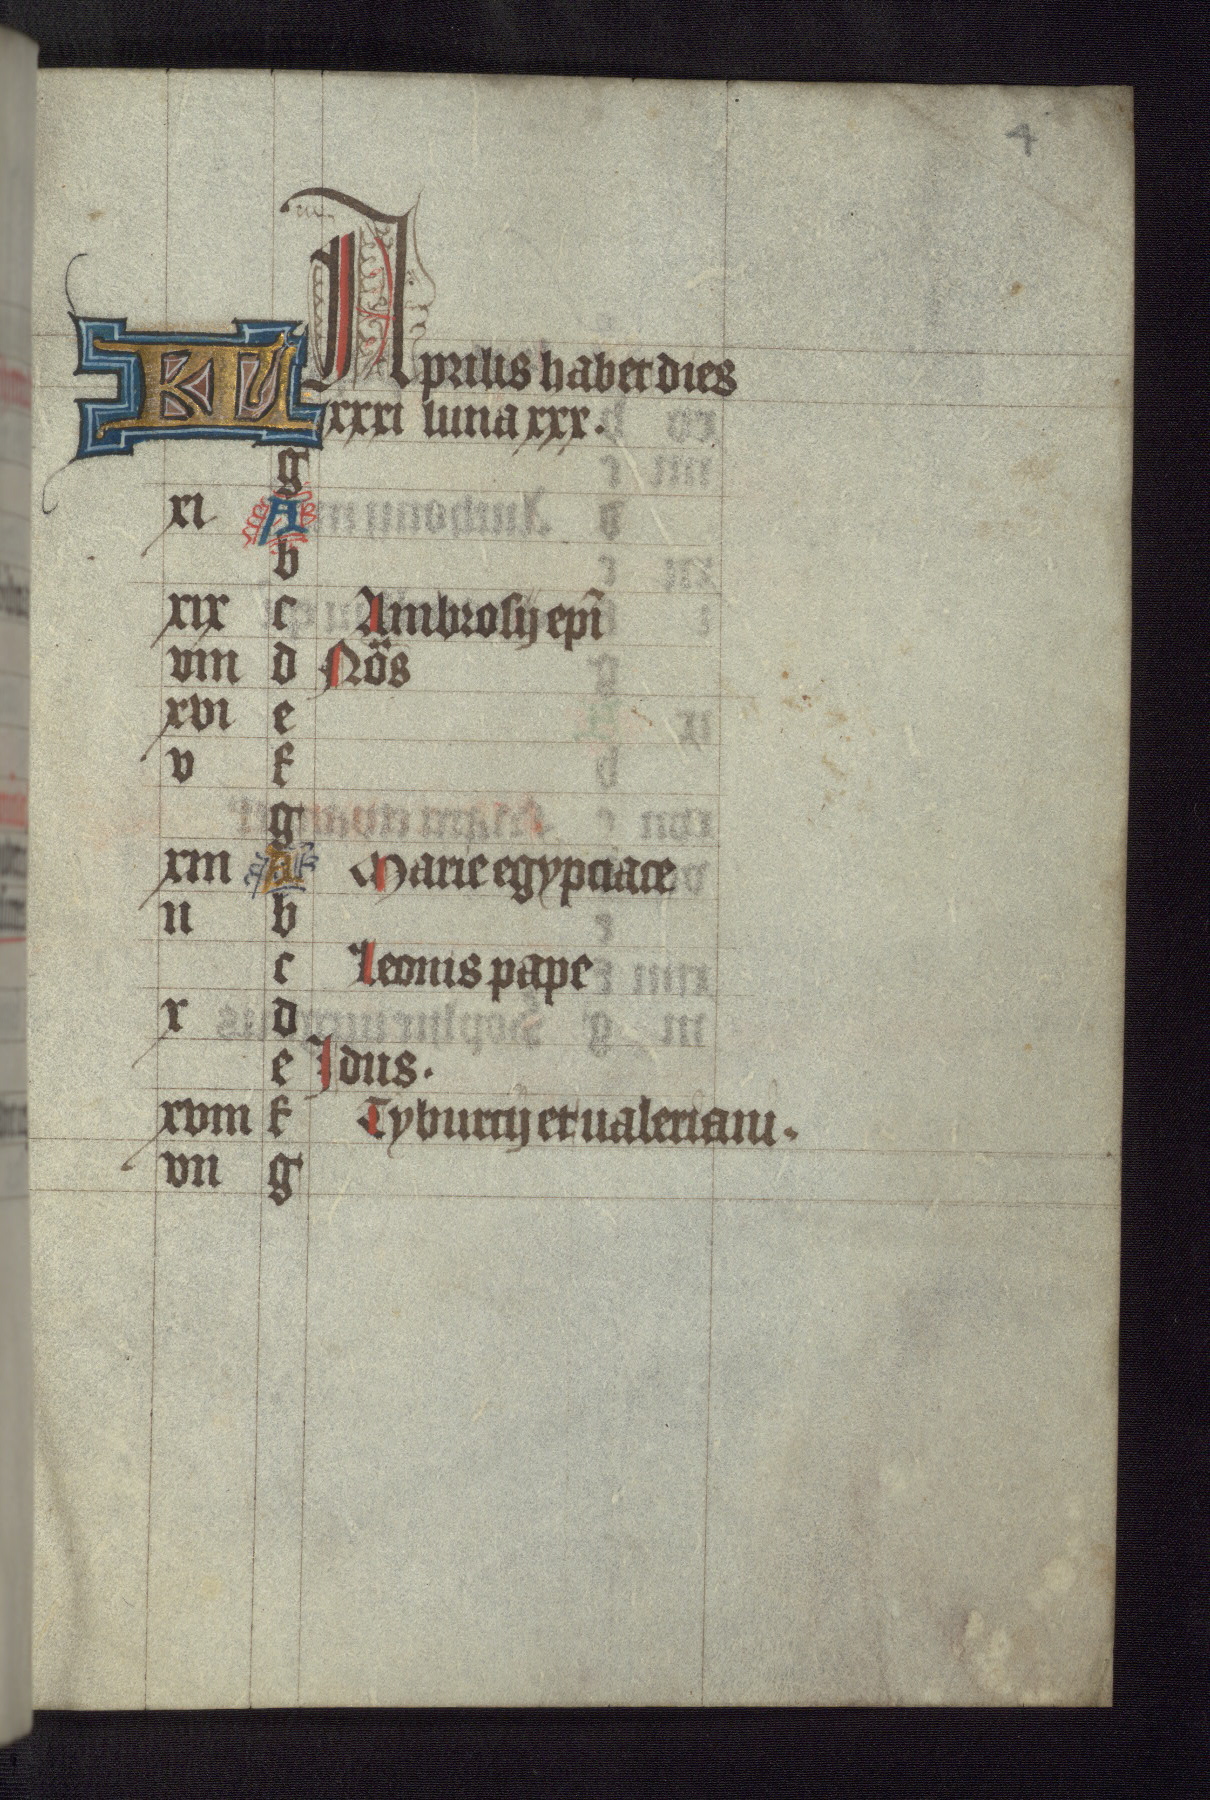 4
KL Aprilis habet dies
xxxi luna xxx.
g
xi A
b
xix c Ambrosij ep̄i
viii d No̎s
xvi e
v f
g
xiii A Marie egypciace
ii b
c Leonis pape
x d
e Idus.
xviii f Tyburcij et ualeriani.
vii g